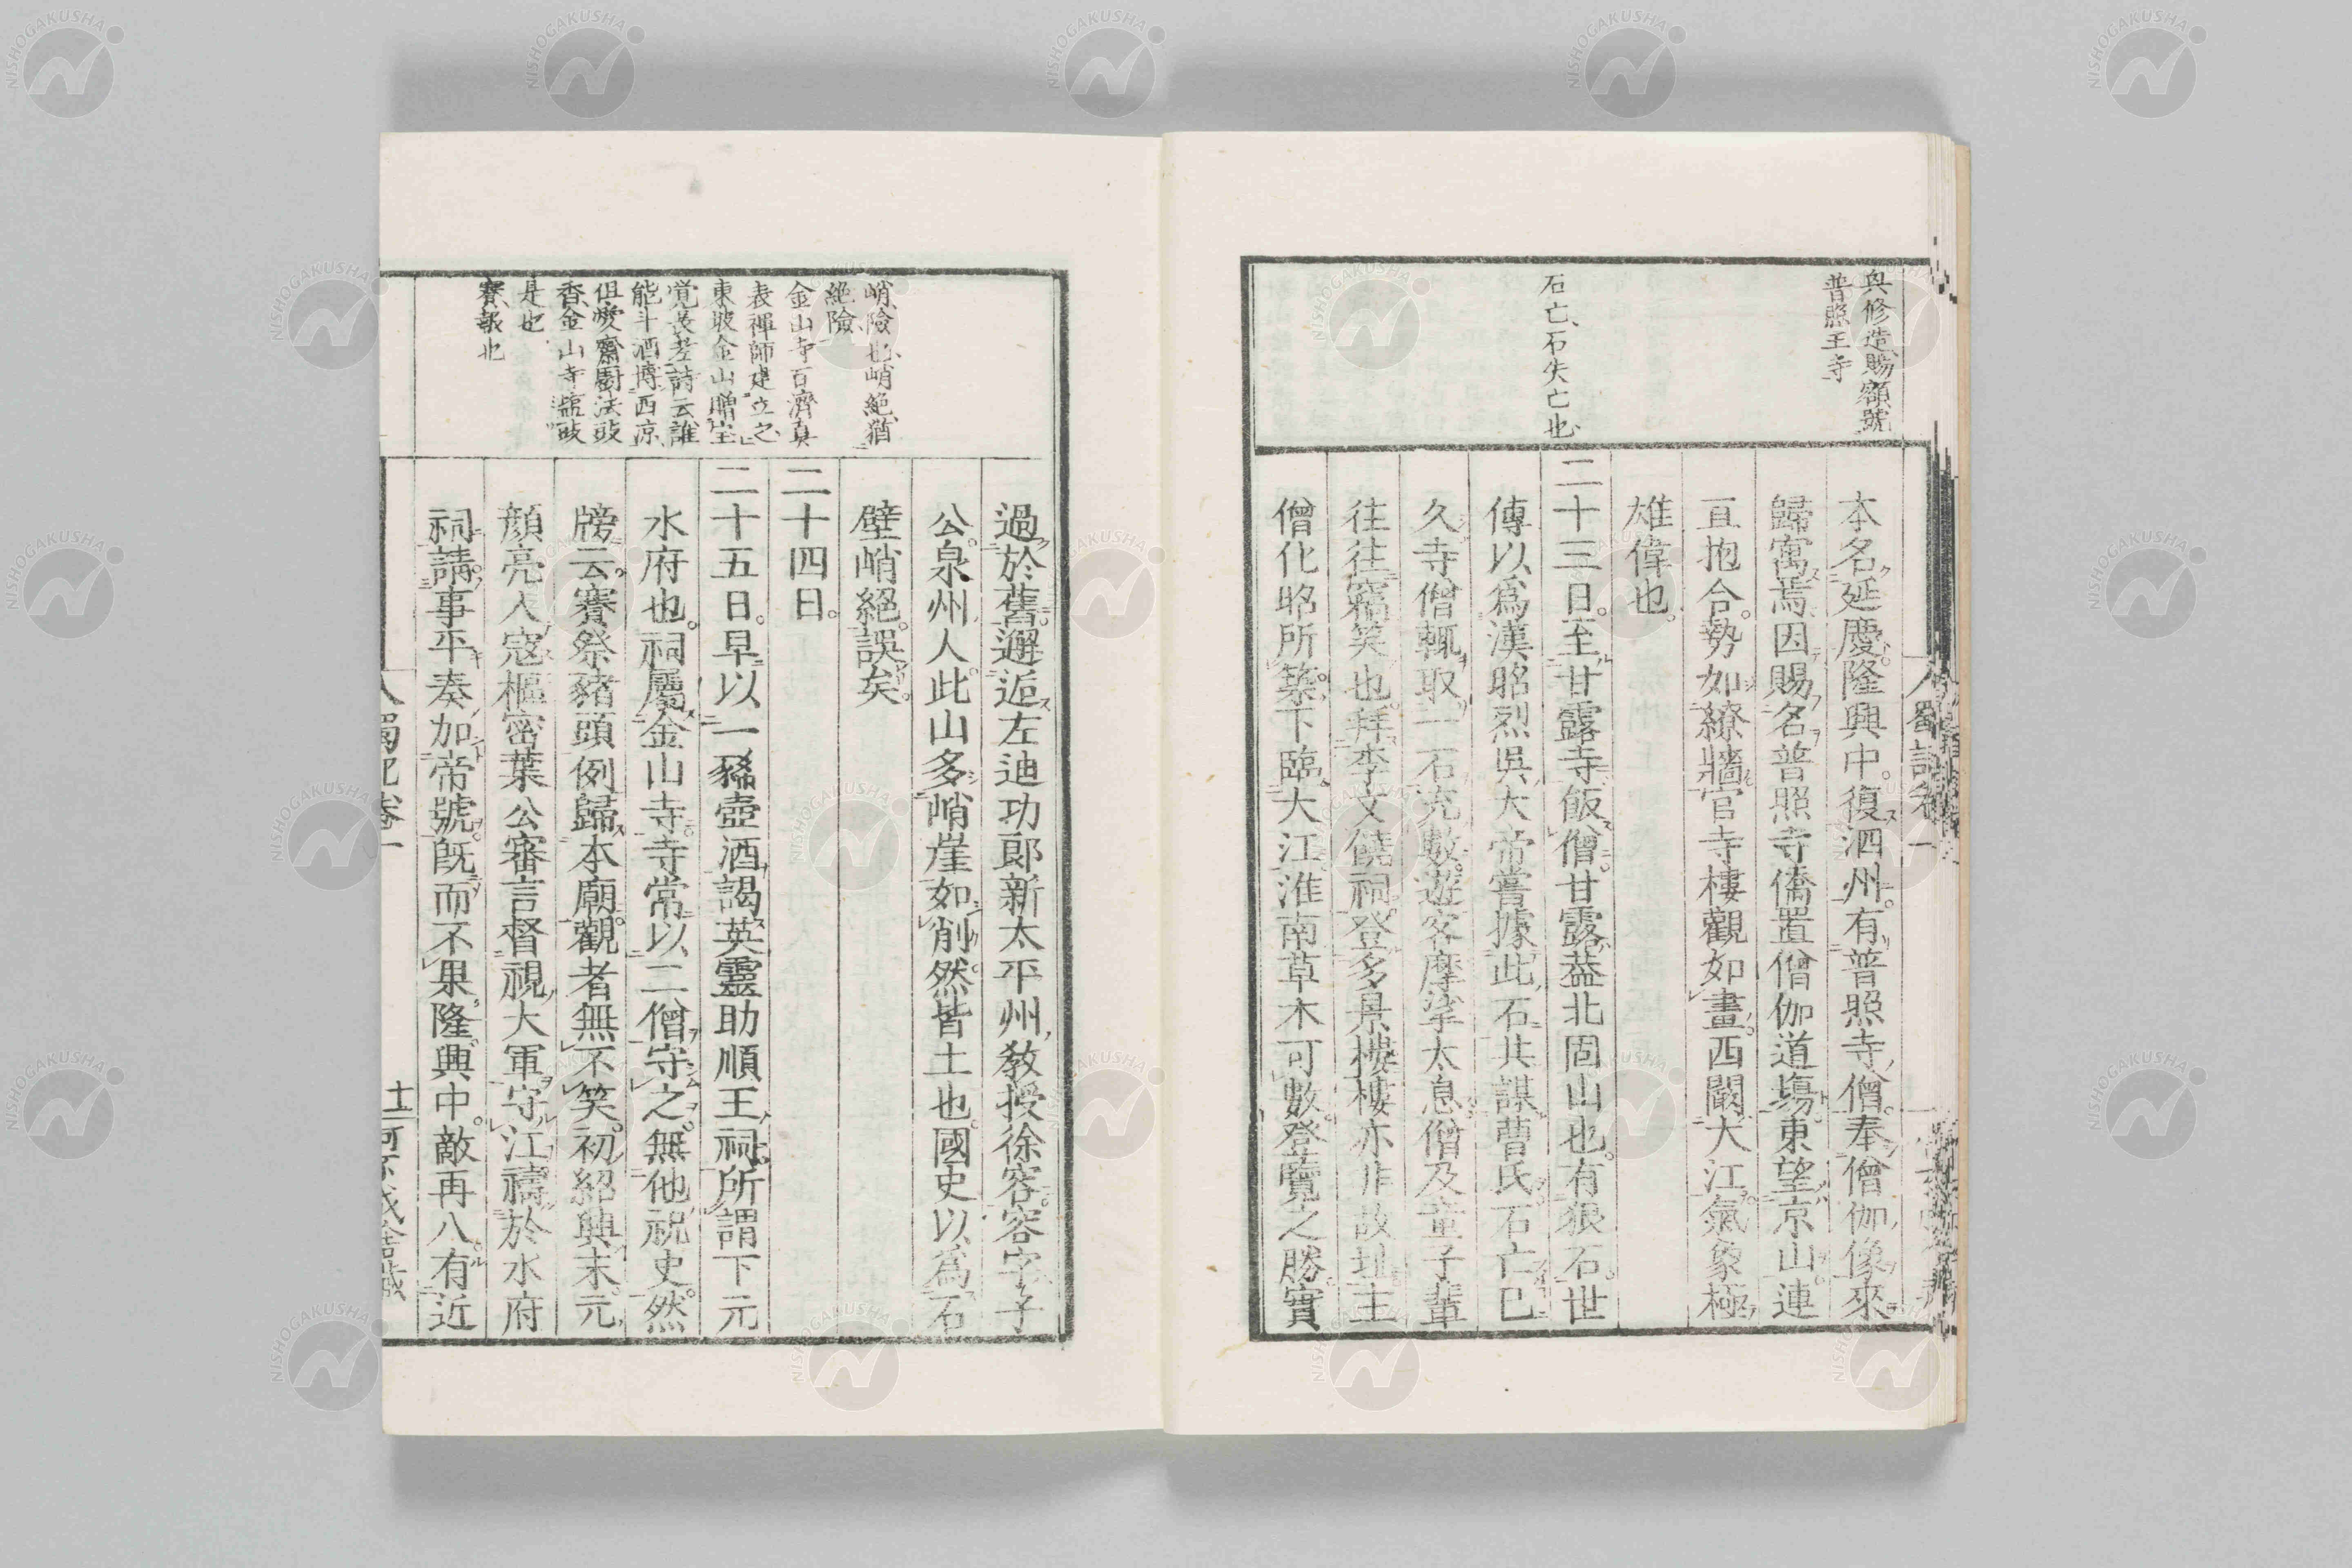 與修造賜額號
普照王寺
石亡、石失亡也、
本名延慶。隆興中。復泗州。有普照寺僧。奉僧伽像來
歸寓焉。因賜名普照寺。僑置僧伽道塲。東望京山。連
亘抱合。勢如繚牆。官寺樓觀如畫。西闞大江。氣象極
雄偉也。
二十三日。至甘露寺。飯僧。甘露。蓋北固山也。有狠石。世
傳以爲漢昭烈吳大帝嘗據此石共謀曹氏。石亡已
久。寺僧輒取一石充數。遊客摩挲太息。僧及童子輩
往往竊笑也。拜李文饒祠。登多景樓。樓亦非故址。主
僧化昭所築。下臨大江。淮南草木可數。登覽之勝。實
峭、險也、峭絕、猶
絕險、
金山寺百濟眞
表禪師建立之
東坡金山贈
詩云誰
能斗酒博西涼、
但愛齋廚法豉
香、金山寺鹽豉
是也
賽、報也
過於舊。邂逅左迪功郎新太平州敎授徐容。容字子
公。泉州人。此山多峭崖如削。然皆土也。國史以爲石
壁峭絕。誤矣。
二十四日。
二十五日。早以一豨壺酒。謁英靈助順王祠。所謂下元
水府也。祠屬金山寺。寺常以二僧守之。無他祝史。然
牓云。賽祭豬頭。例歸本廟。觀者無不笑。初紹興末。元
顏亮入寇。樞密葉公審言督視大軍守江。禱於水府
祠。請事平奏加帝號。旣而不果。隆興中。敵再入。有近